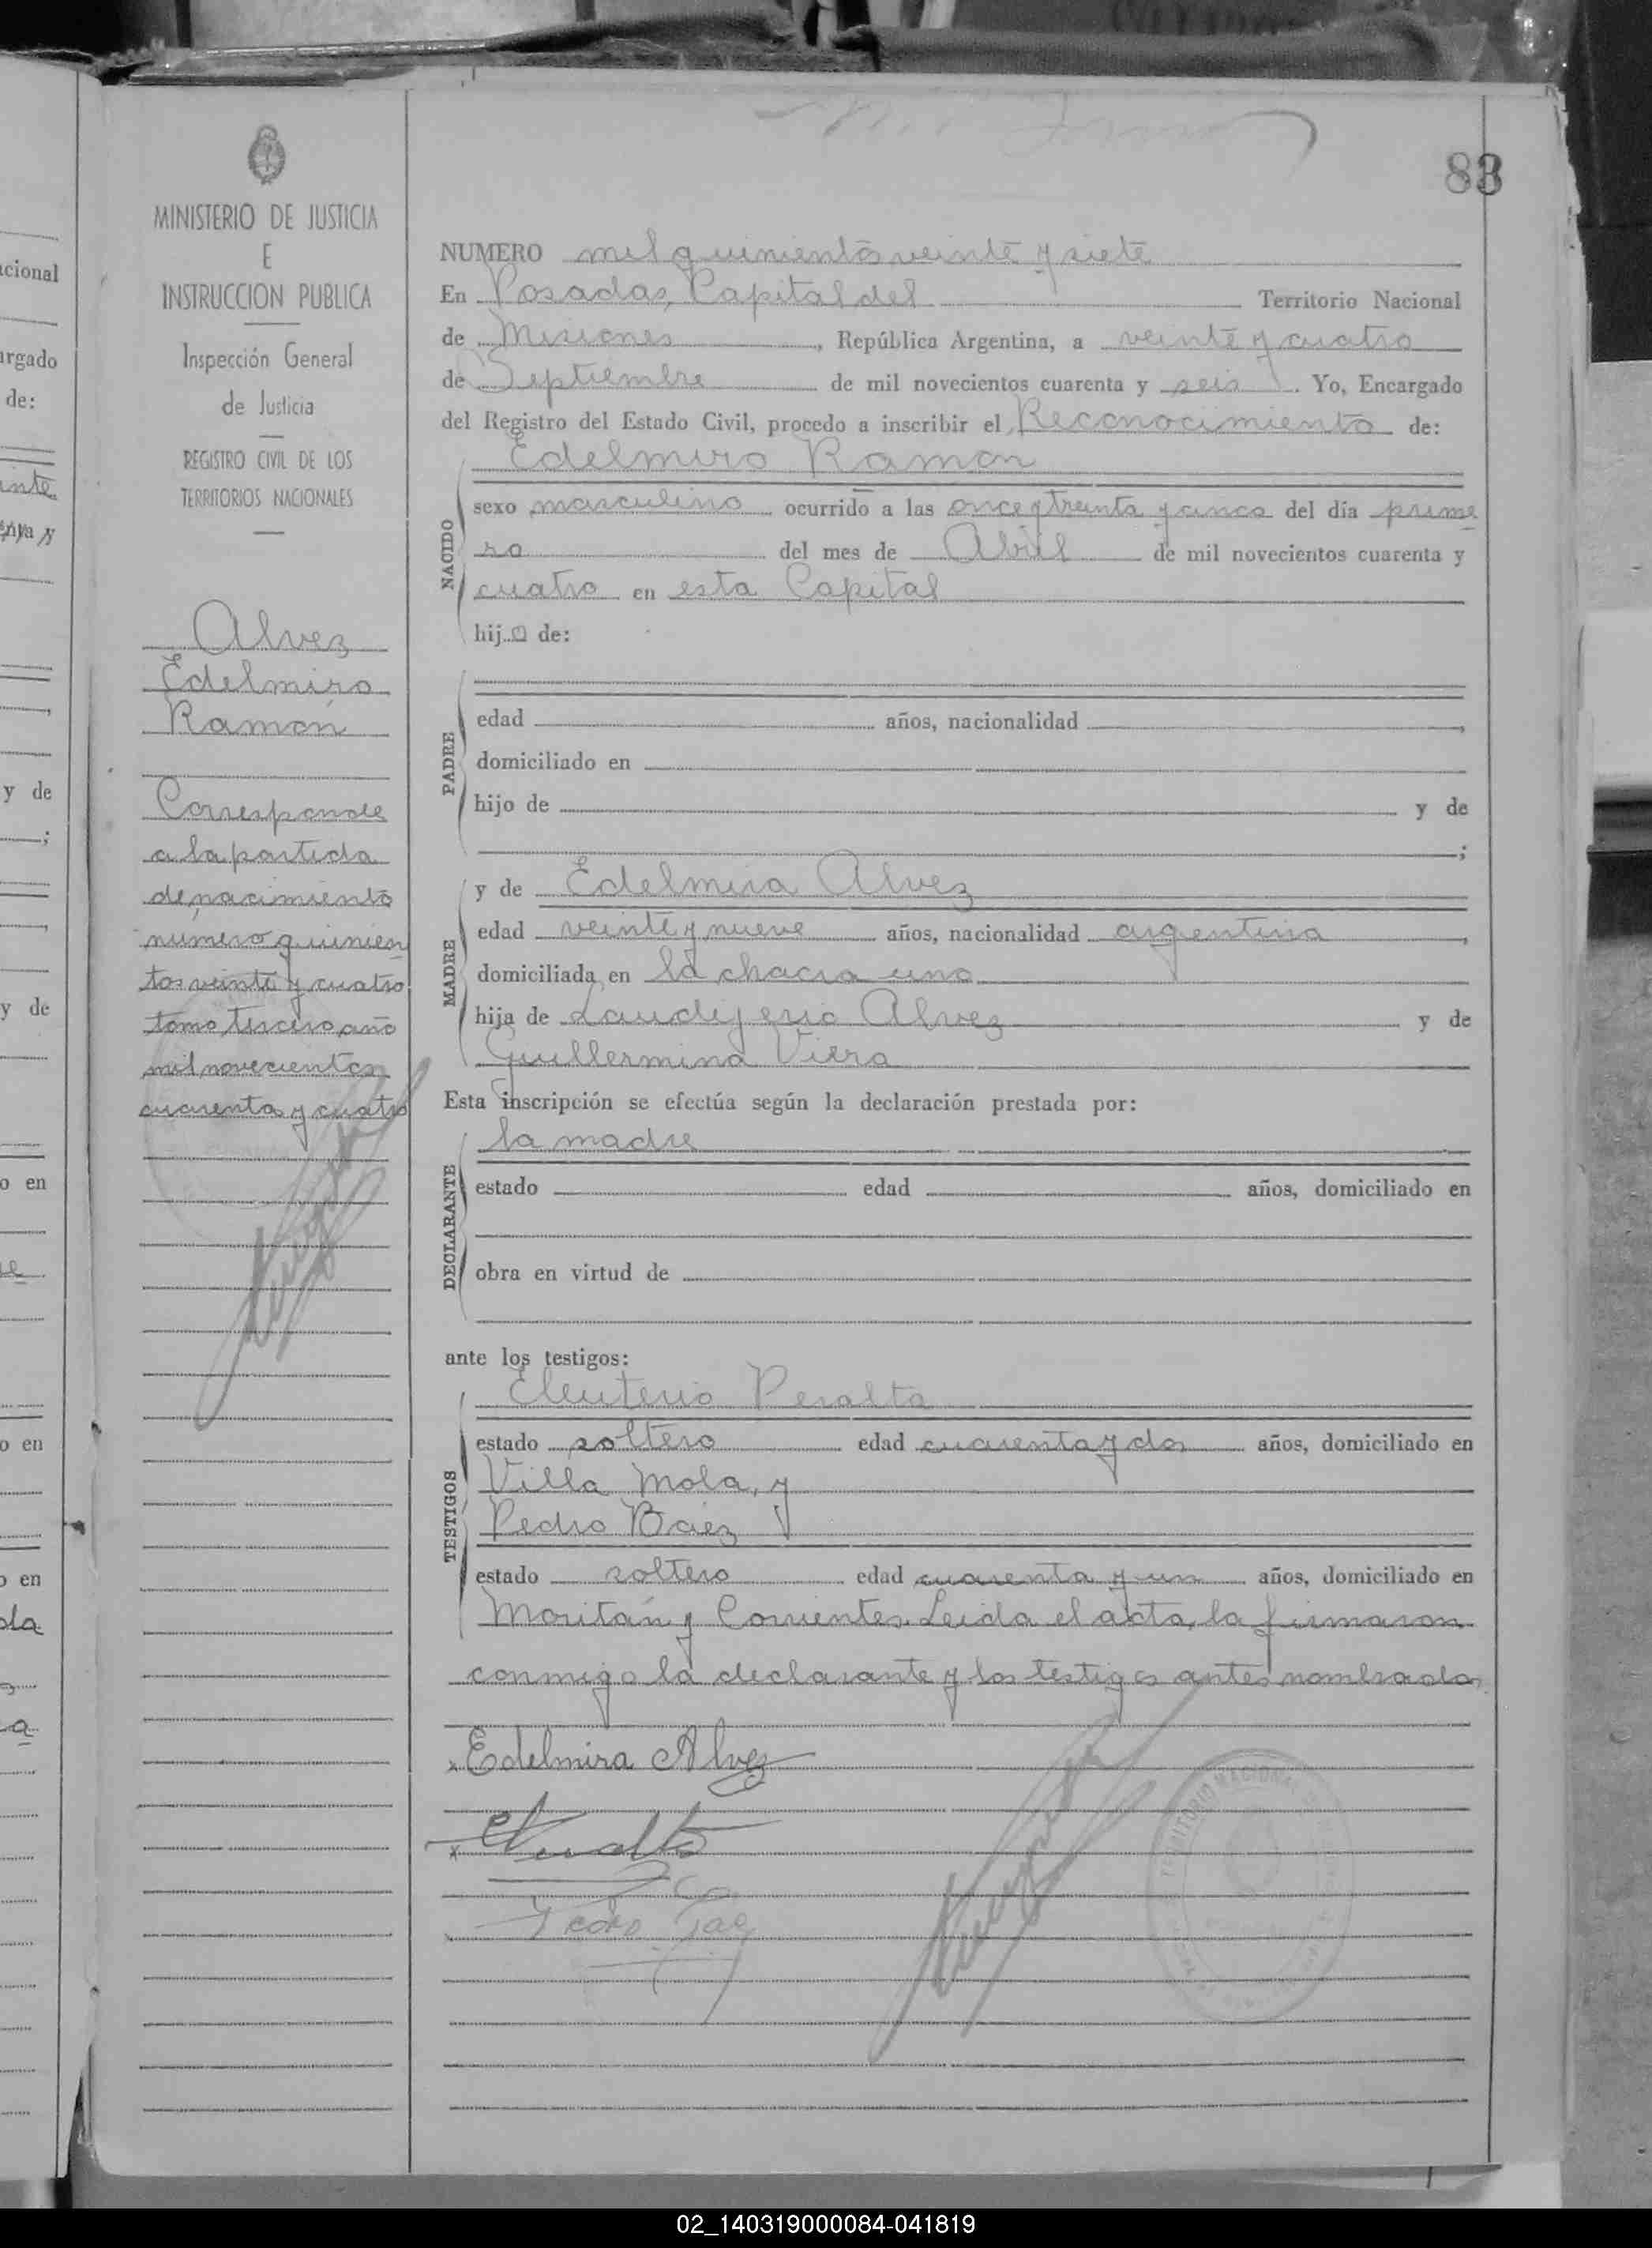 83
MINISTERIO DE JUSTICIA
E
INSTRUCCION PUBLICA
Inspección General
de Justicia
REGISTRO CIVIL DE LOS
TERRITORIOS NACIONALES
Alvez
Edelmiro
Ramón
Corresponde
a la partida
de nacimiento
numero quinien
tos veinte y cuatro
tomo tercero año
mil novecientos
cuarenta y cuatro
NUMERO mil quinientos veinte y siete
En Posadas, Capital del Territorio Nacional
de Misiones, República Argentina, a veinte y cuatro
de Septiembre de mil novecientos cuarenta y seis. Yo, Encargado
del Registro del Estado Civil, procedo a inscribir el Reconocimiento de:
NACIDO
Edelmiro Ramon
sexo masculino ocurrido a las once y treinta y cinco del día prime
ro del mes de Abril de mil novecientos cuarenta y
cuatro en esta Capital
hijo de:
PADRE
edad años, nacionalidad ,
domiciliado en
hijo de y de
;
MADRE
y de Edelmira Alvez
edad veinte y nueve años, nacionalidad argentina,
domiciliada en la chacra uno
hija de Alvez y de
Guillermina Viera
Esta inscripción se efectúa según la declaración prestada por:
DECLARANTE
la madre
estado edad años, domiciliado en
obra en virtud de
ante los testigos:
TESTIGOS
Eleuterio Peralta
estado soltero edad cuarenta y dos años, domiciliado en
Villa Mola, y
Pedro Baez
estado soltero edad cuarenta y un años, domiciliado en
Moritán y Corrientes. Leida el acta, la firmaron
conmigo la declarante y los testigos antes nombrados
x Edelmira Alvez
x
Pedro
cional
argado
de:
inte
y de
;
y de
o en
o en
o en
da
a
02_140319000084-041819